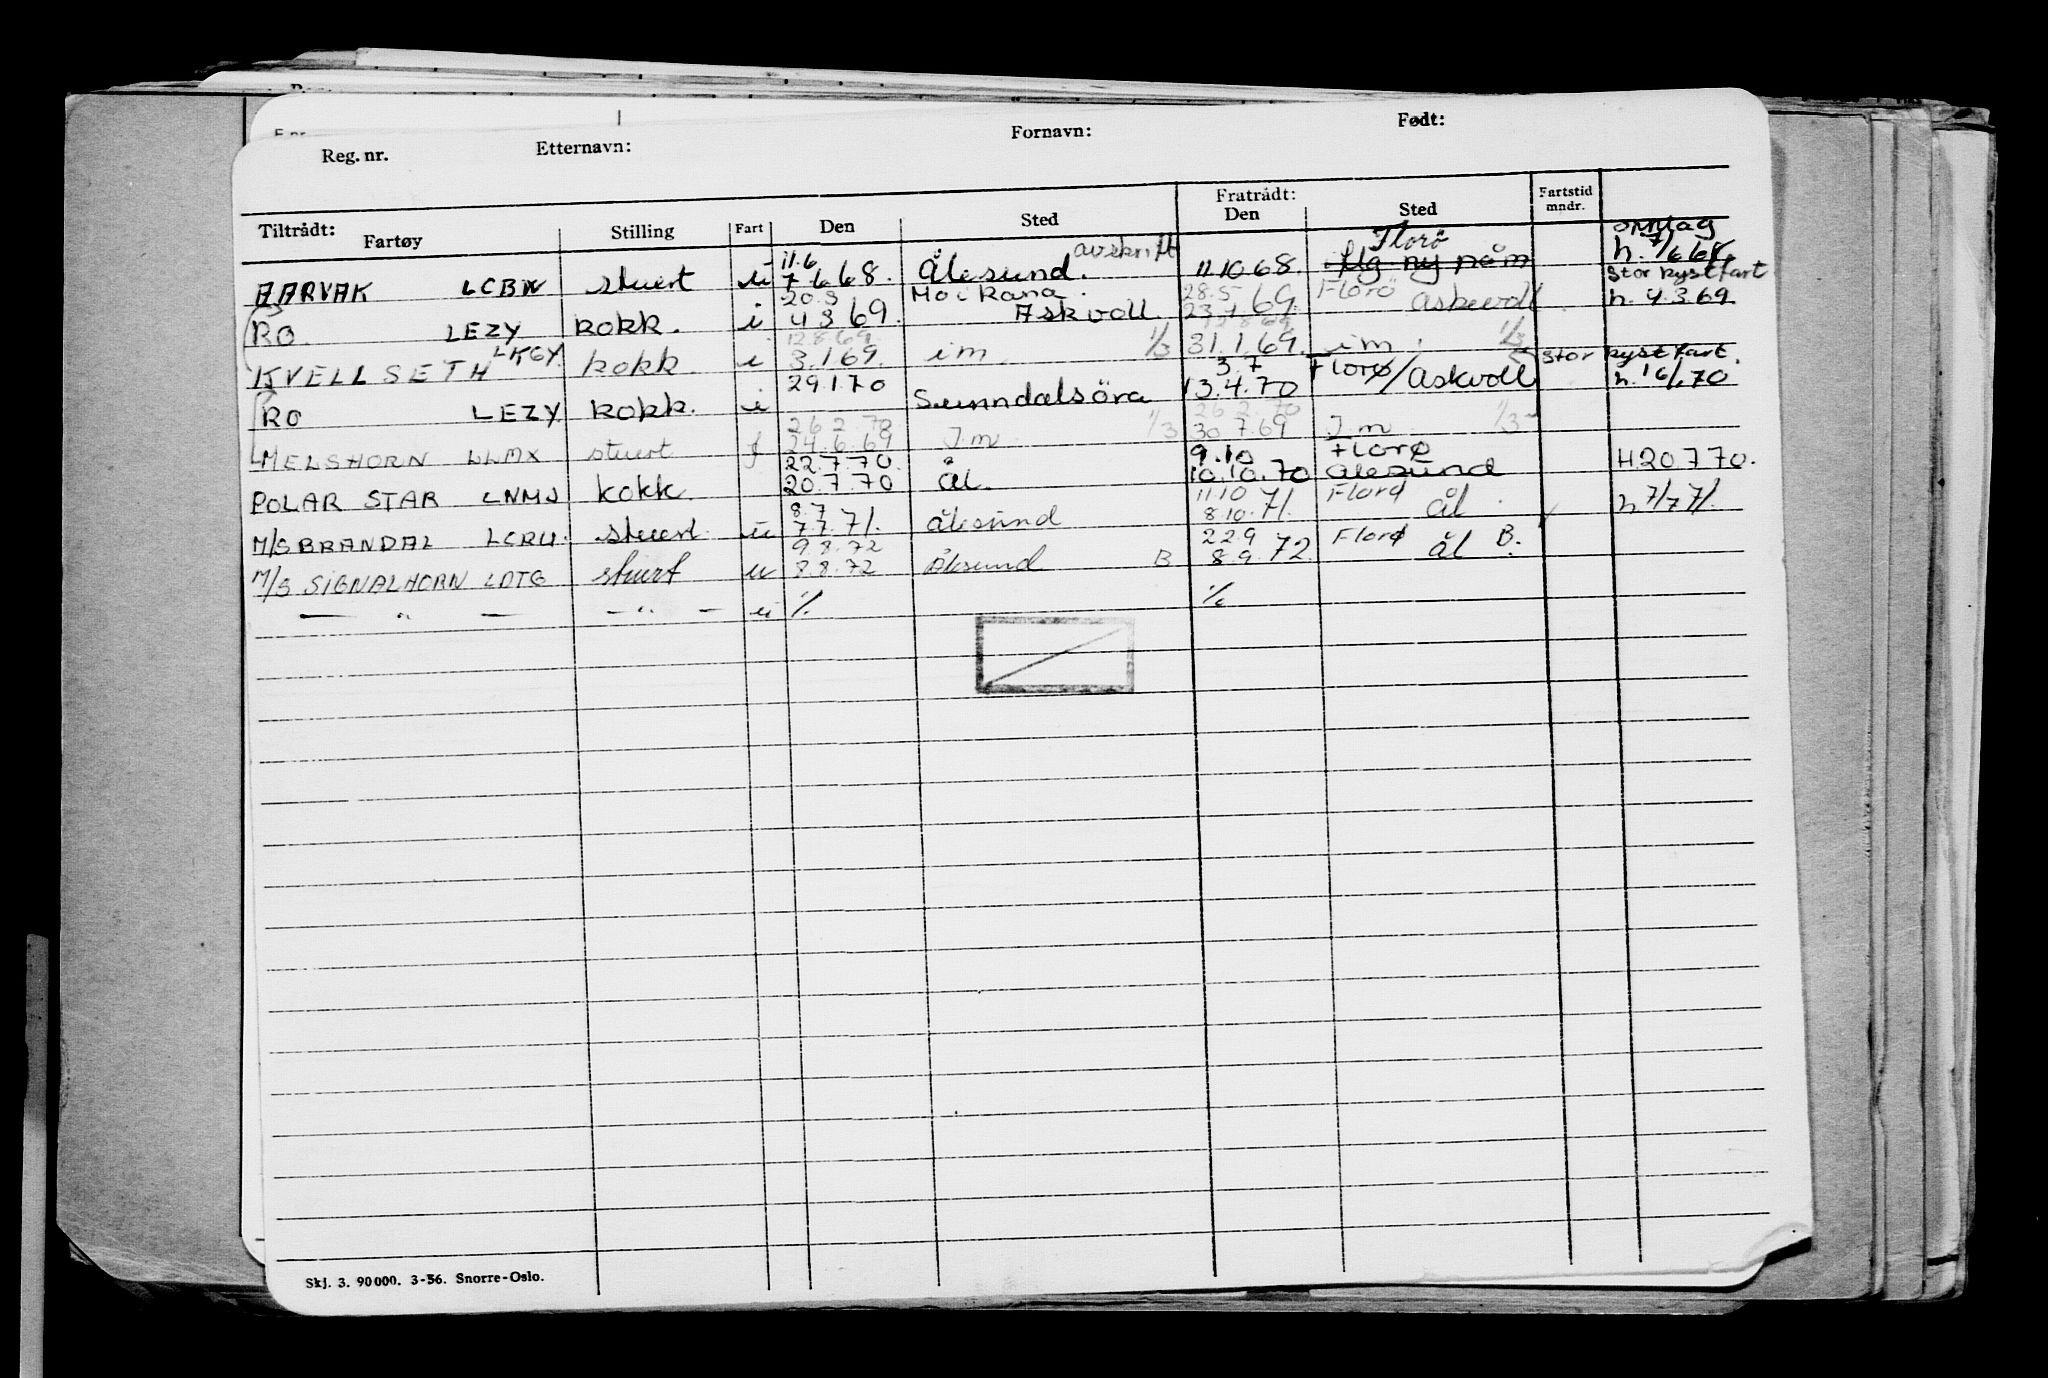 Reg. nr. Etternavn: Fornavn: Født:
Tiltrådt: Fratrådt:
Fartøy Stilling Fart Den Sted Den Sted Fartstid mndr.
avskrift Florö
11.6
AARVAK LCBW stuert u 7.6.68. Ålesund. 11.10.68. h. 7/6 68.
20.3 Mo i Rana. 28.5 Florö Stor kystfart
RO LEZY kokk. i 4 3 69. Askvoll. 23.7.69 askevoll h. 4.3.69
12.8.69
KVELLSETH LKGY. kokk i 3.1.69. i m 1/3 31.1.69. i m. 1/3
3.7 Florø Stor kystfart.
RO LEZY kokk. u 29.1.70 Sunndalsöra 13.4.70 /askvoll h. 16/1.70
26.2.70 26.2.70
MELSHORN LLMX stuert f 24.6.69 I m 1/3 30.7.69 I m 1/3
22.7.70. 9.10 Florø
POLAR STAR LNMJ kokk. 20.7.70 Ål. 10.10.70 Ålesund H.20.7.70.
8.7 11.10 Florø
M/S BRANDAL LCRU. stuert u 7.7.71. Ålesund 8.10.71. ål h 7/7 71.
9.8.72 22.9 Florø
M/S SIGNALHORN LDTG stuert u 8.8.72 Ålesund B 8.9.72 ål B.
— " — — " — u
Skj. 3. 90 000. 3-56. Snorre-Oslo.